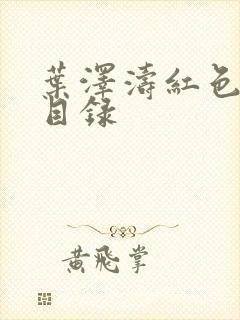 葉澤濤紅色
目錄
黃飛掌